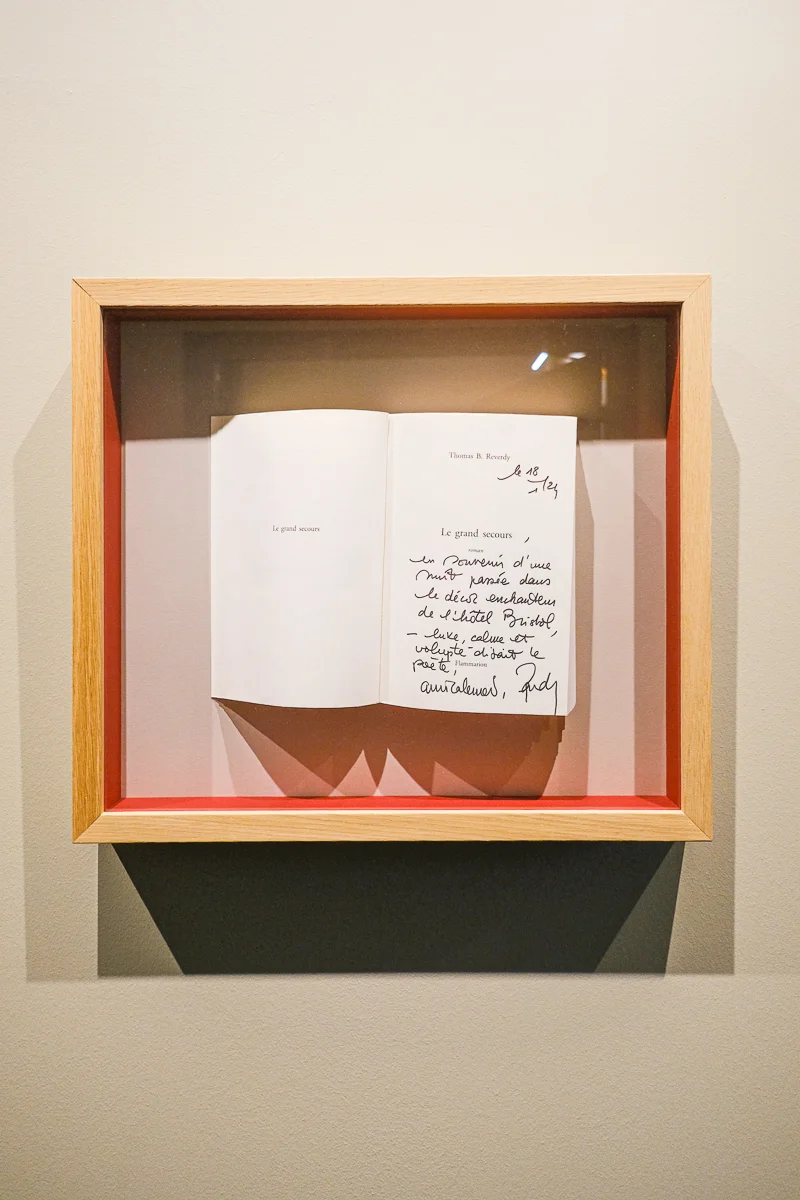 Le grand secours
Thomas B. Reverdy
le 18
1/24
Le grand secours ,
roman
en souvenir d'une
nuit passée dans
le décor enchanteur
de l'hôtel Bristol,
– luxe, calme et
volupté - disait le
poète,
Flammarion
amicalement,